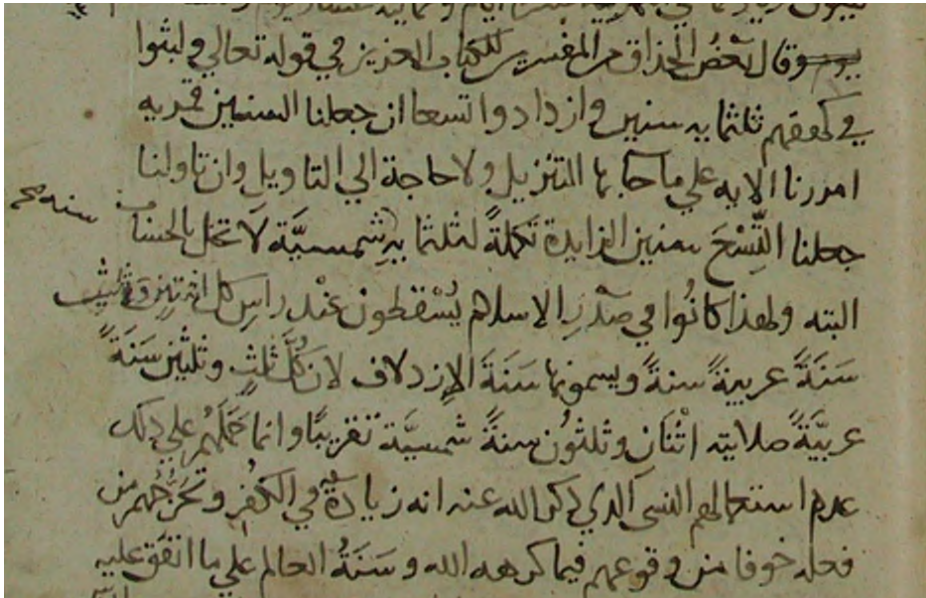 وقال بعض الحذاق من المفسرين للكتاب العزيز في قوله تعالي ولبثوا
في كهفهم ثلثمايه سنين وازدادوا تسعا ان جعلنا السنين قمريه
امررنا الايه علي ما جا بها التنزيل ولا حاجة الي التاويل وان تاولنا
جعلنا التِّسْعَ سنين الزايدة تكملةً لثلثمايهِ شمسيَّة لَا تخل بالحساب
سنه صح
البته ولهذا كانُوا في صَدْرِ الاسلام يُسْقطون عند راسِ كل اثنتين وثلثين
سَنَةً عربيةً سنةً ويسمونها سَنَةَ الاِزدلاف لان كُلَّ ثلثٍ وثلثين سَنَةً
عربيَّةً اثْنَانِ وثلثُون سنةً شمسيَّة تقريبًا وانما حَمَلَهُم علي ذلك
عدم استعمالهم النسى الذي ذكر الله عنه انه زيادةٌ في الكُفْرِ وتحَرُّجُهم من
فعله خوفا من وقوعهم فيما كرهه الله وسَنَةُ العالم علي ما اتفق عليه